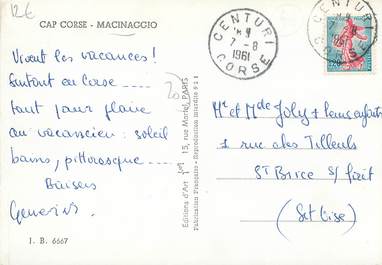 12€
CAP CORSE - MACINAGGIO
Vivent les vacances!
Surtout en Corse ----
tout pour plaire
au vacancier: soleil
bains, pittoresque ----
Baisers
J. B. 6667
Editions d'Art
15, rue Martel, PARIS
Fabrication Française - Reproduction interdite
CENTURI
7-8
1961
CORSE
Mr et Mde Joly & leurs enfants
1 rue des Tilleuls
St Brice s/ forêt
(Set Oise)